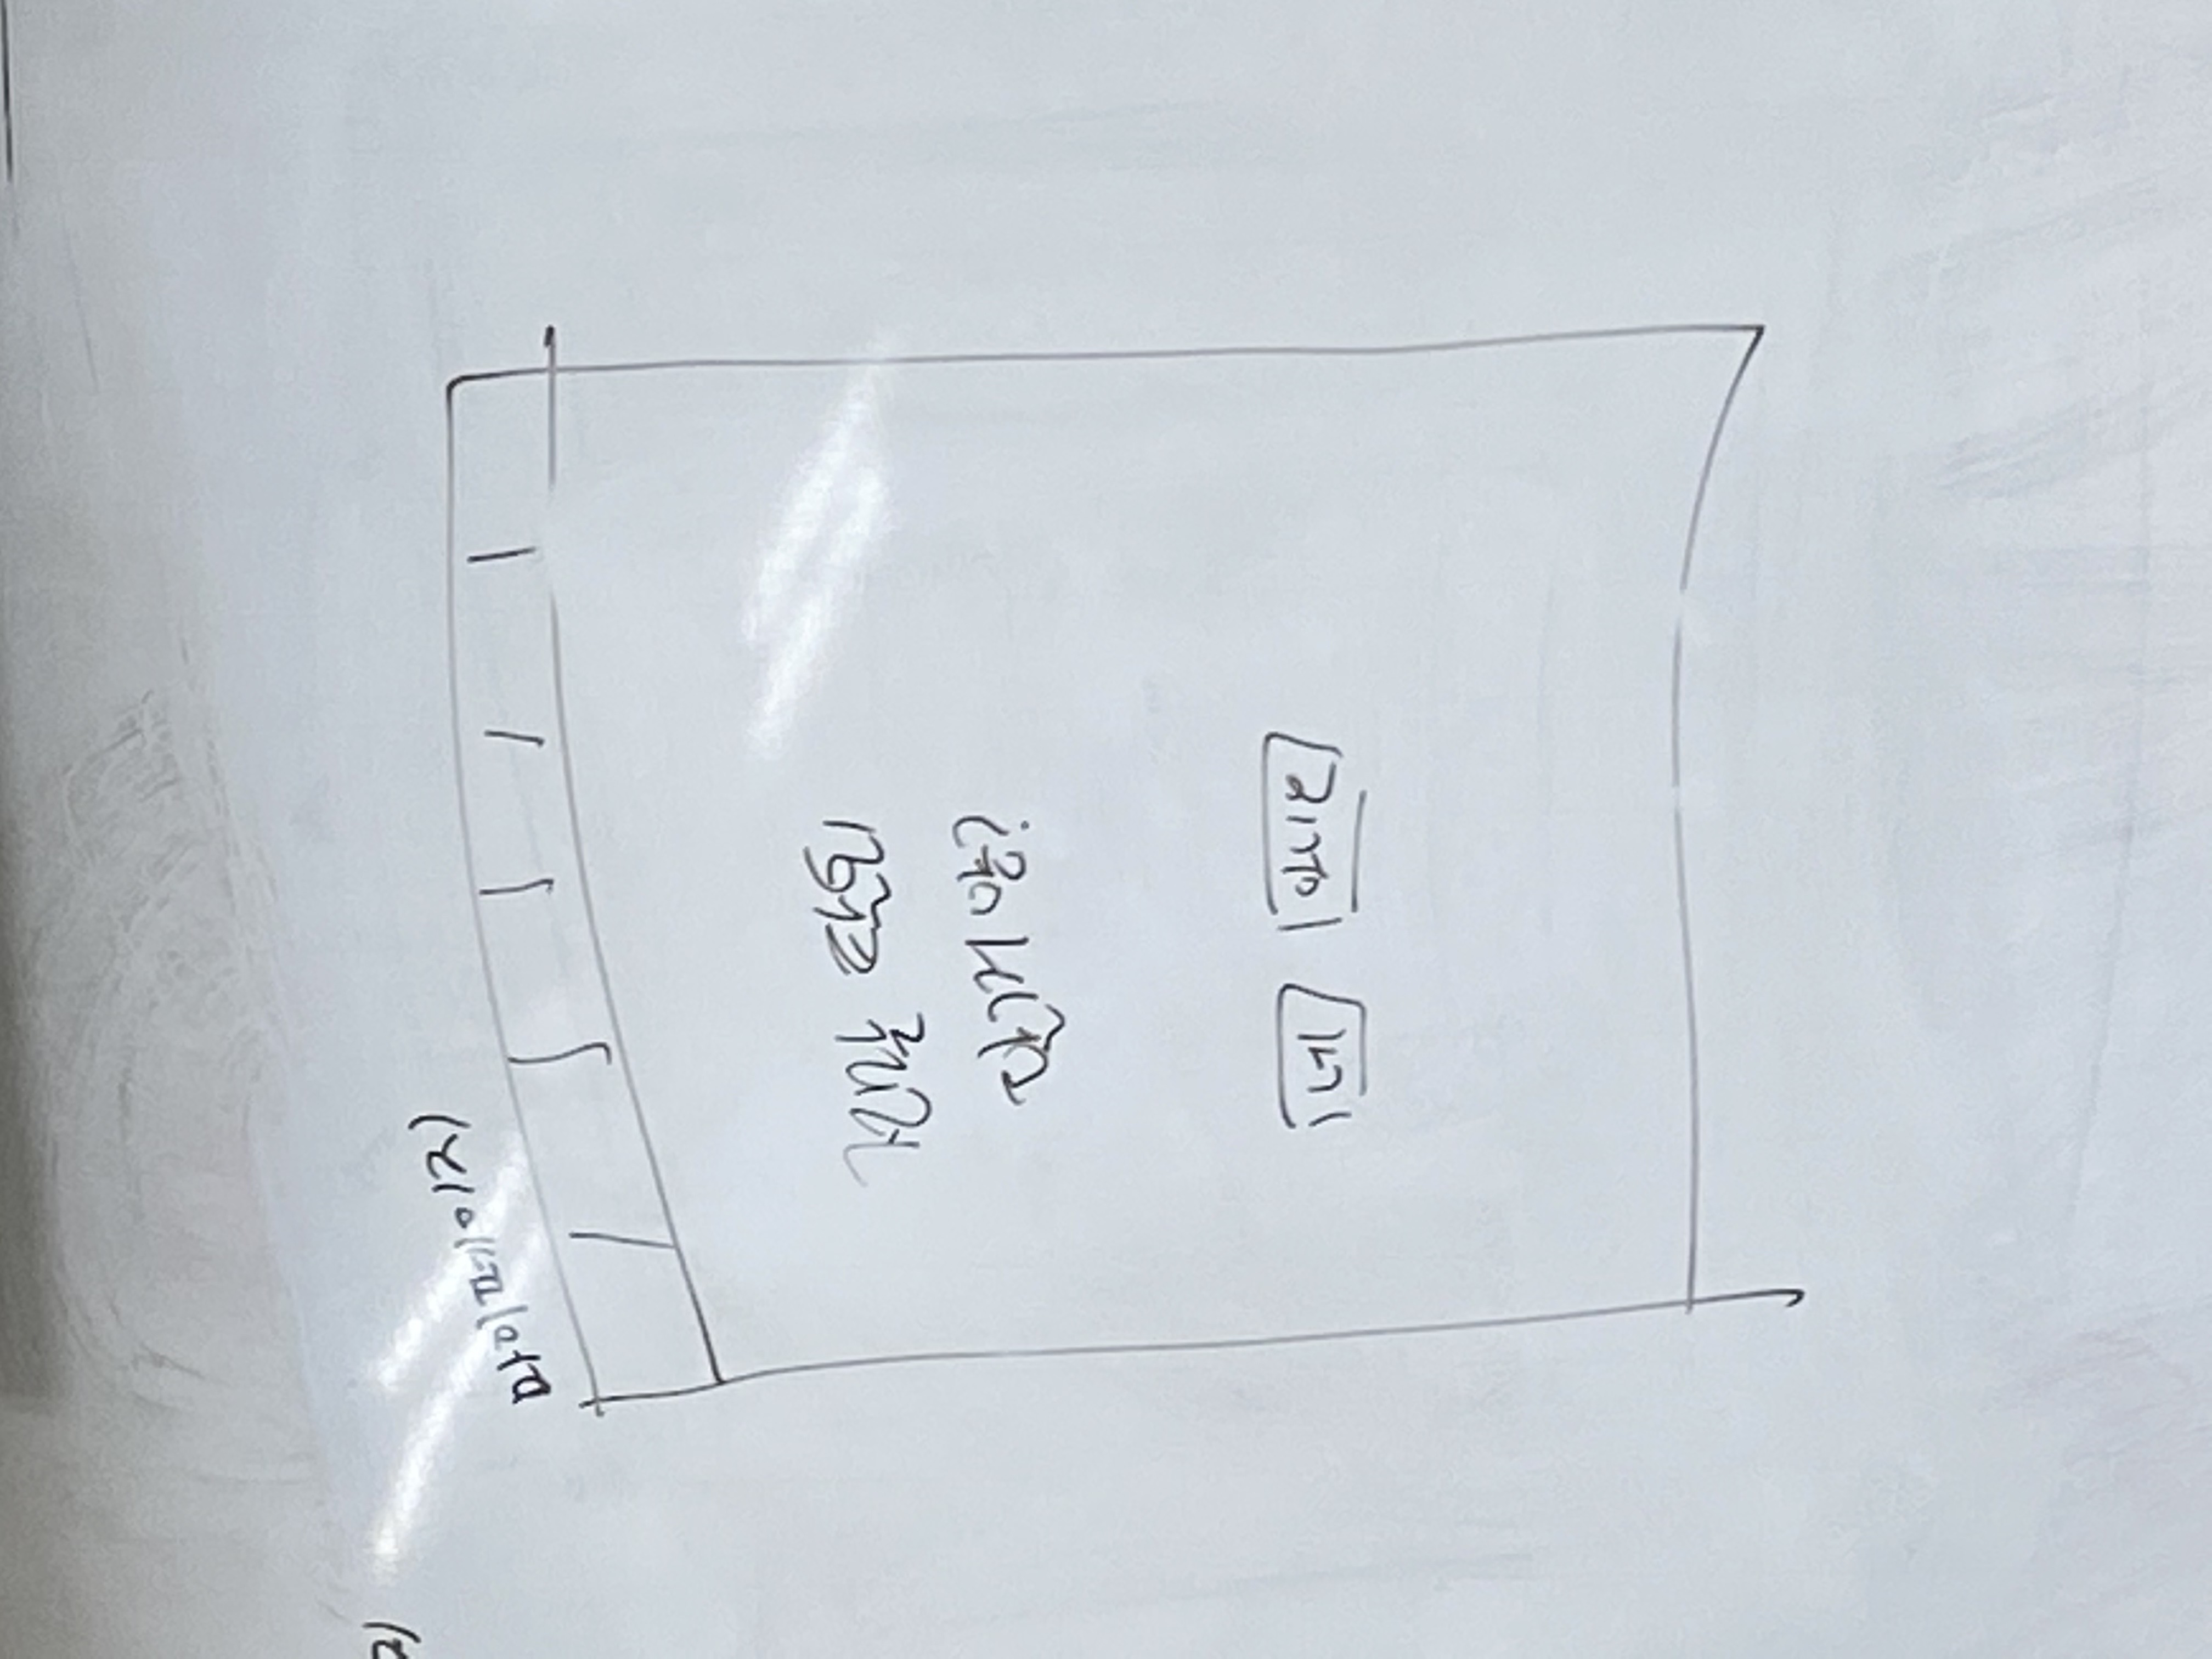 마이페이지)
정말 탈퇴
할거양?
네 아니오